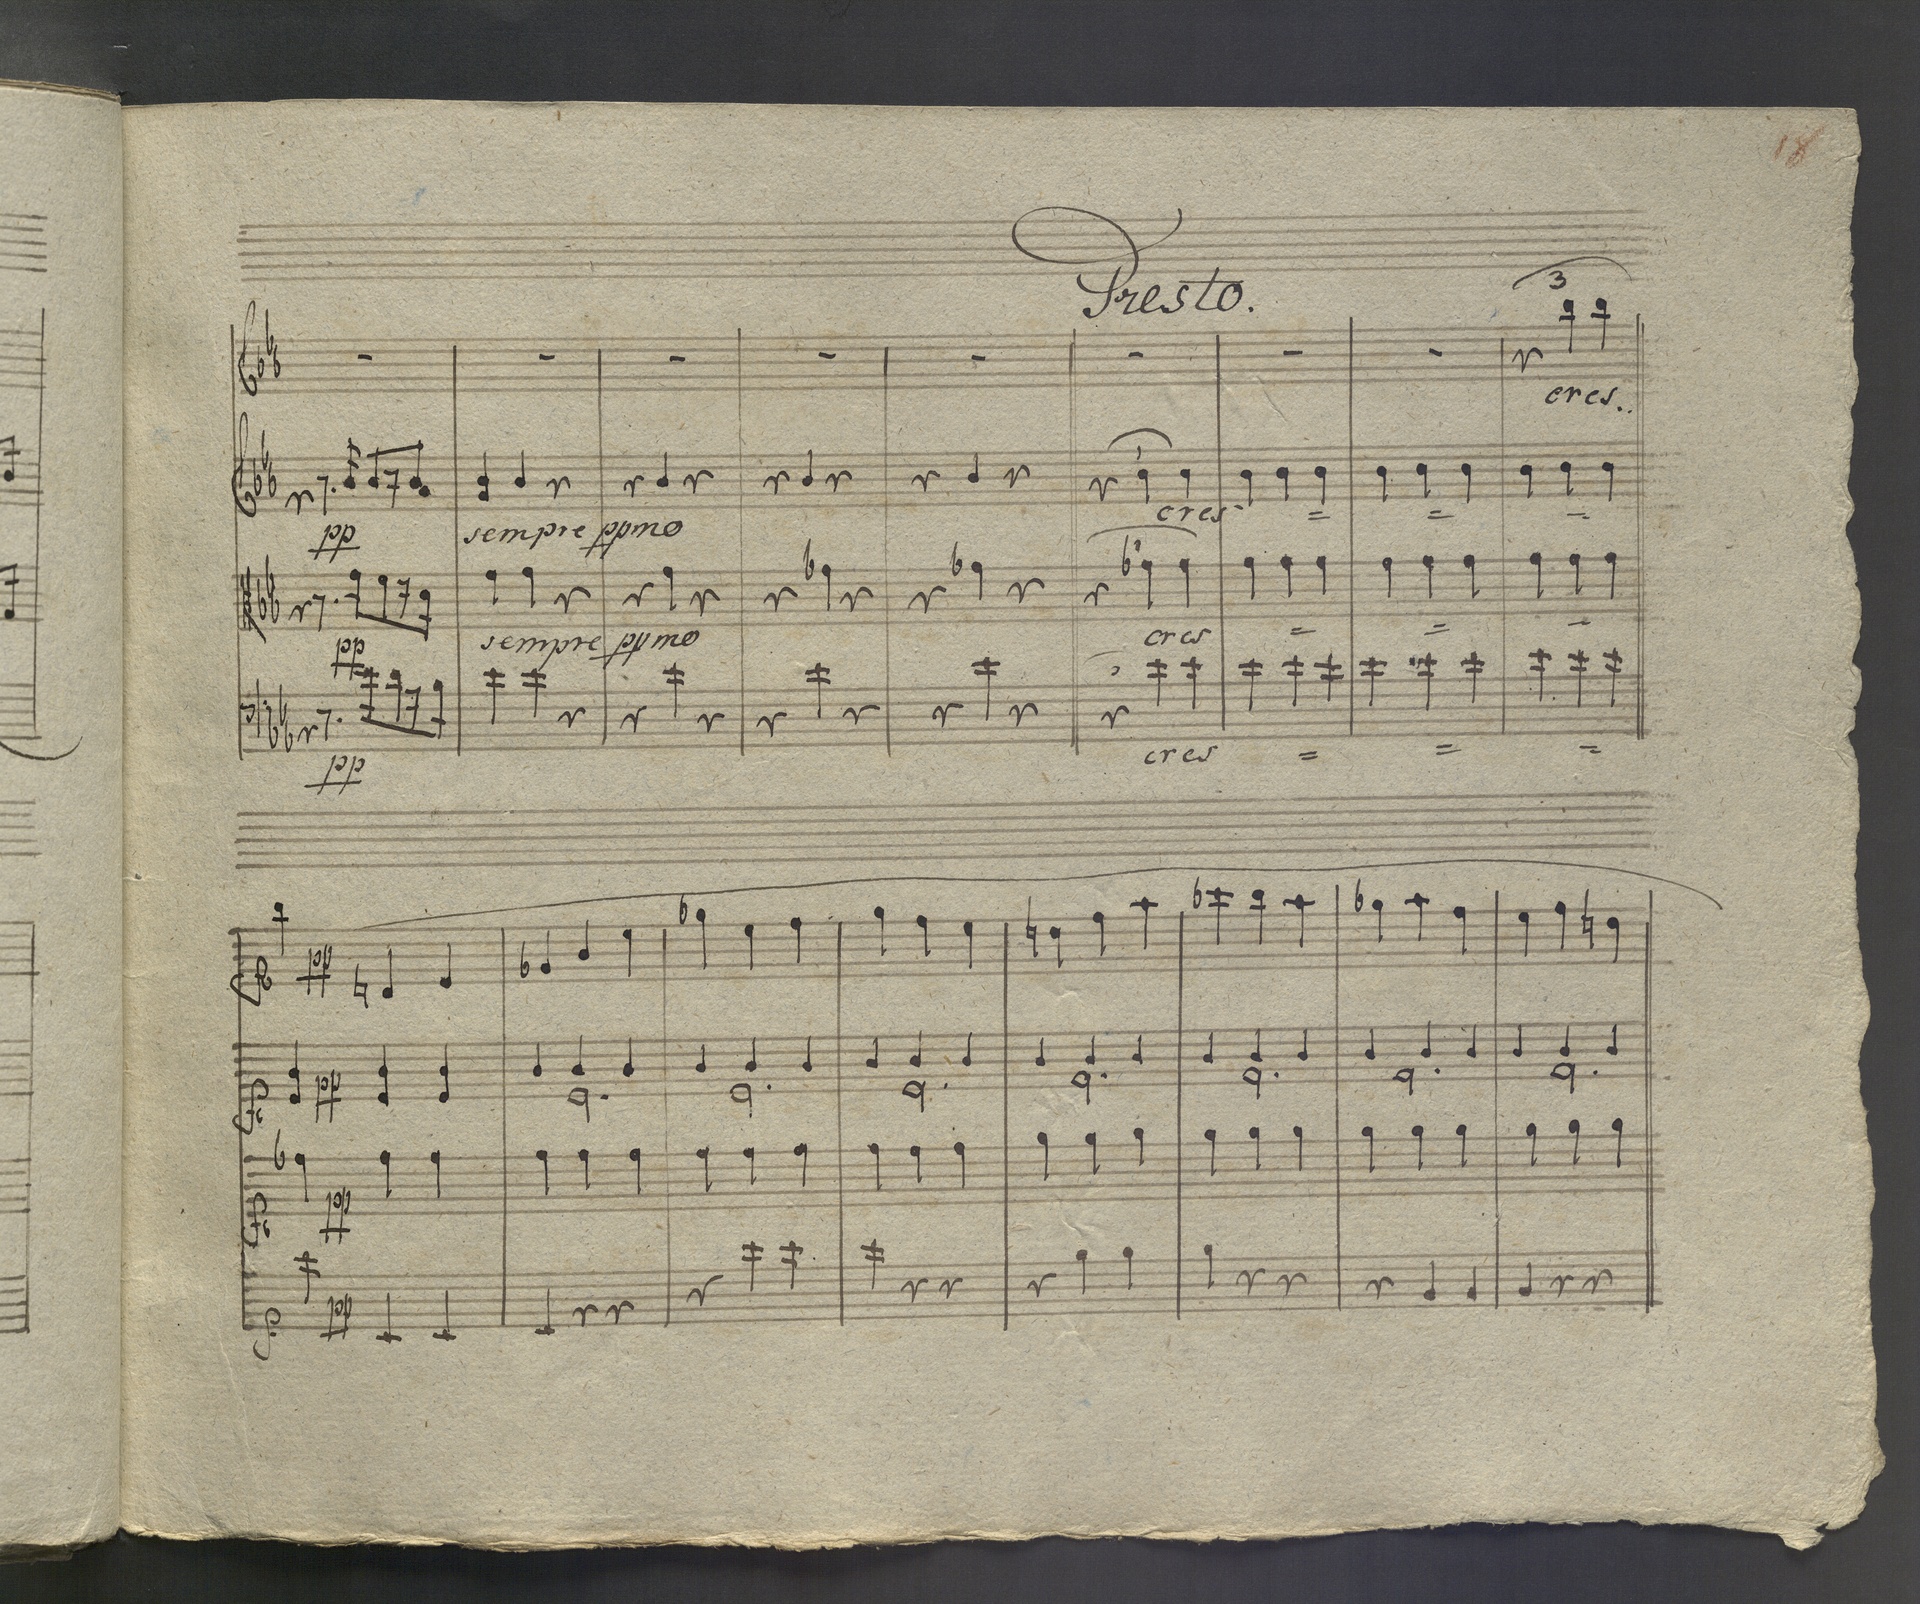 18
Presto.
3
cres..
pp sempre ppmo cres
pp sempre ppmo cres
pp cres
pp
pp
pp
pp